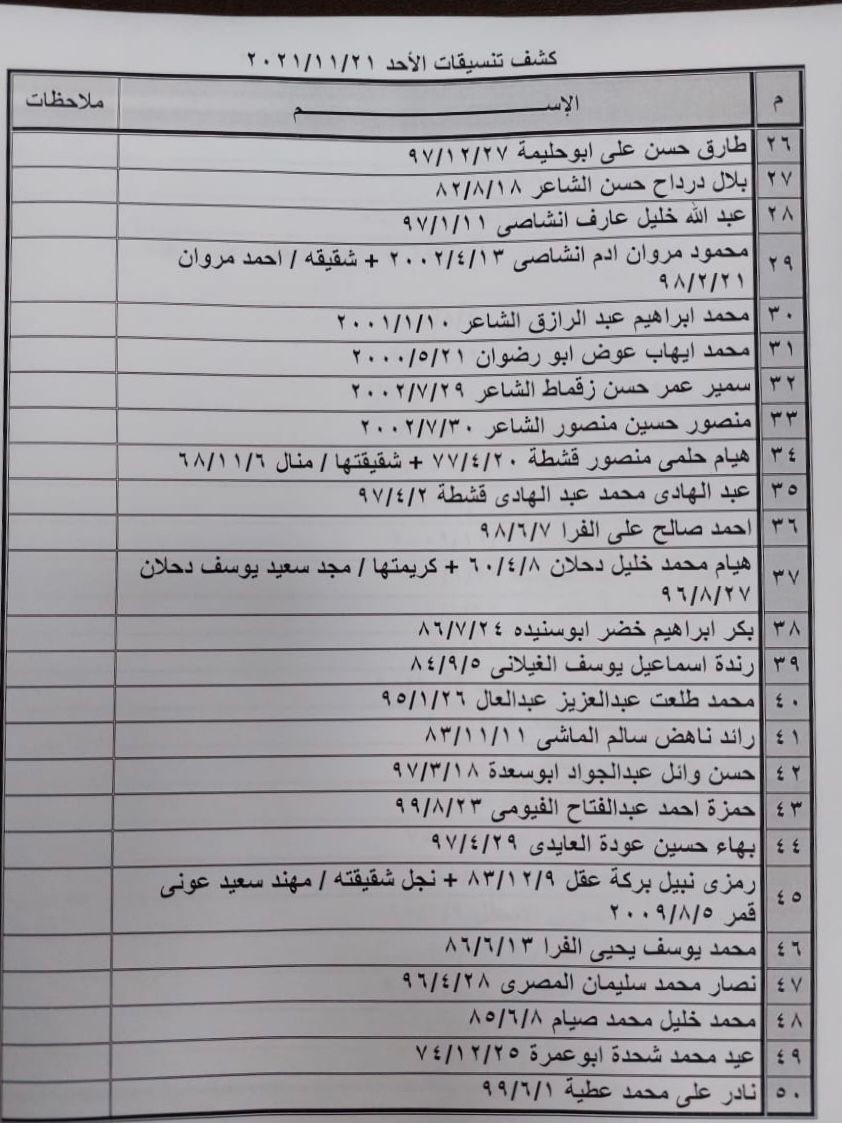 كشف تنسيقات الأحد ٢٠٢١/١١/٢١
م الإســـــــــــم ملاحظات
٢٦ طارق حسن على ابوحليمة ٩٧/١٢/٢٧
٢٧ بلال درداح حسن الشاعر ٨٢/٨/١٨
٢٨ عبد الله خليل عارف انشاصى ٩٧/١/١١
٢٩ محمود مروان ادم انشاصى ٢٠٠٢/٤/١٣ + شقيقه / احمد مروان
٩٨/٢/٢١
٣٠ محمد ابراهيم عبد الرازق الشاعر ٢٠٠١/١/١٠
٣١ محمد ايهاب عوض ابو رضوان ٢٠٠٠/٥/٢١
٣٢ سمير عمر حسن زقماط الشاعر ٢٠٠٢/٧/٢٩
٣٣ منصور حسين منصور الشاعر ٢٠٠٢/٧/٣٠
٣٤ هيام حلمى منصور قشطة ٧٧/٤/٢٠ + شقيقتها / منال ٦٨/١١/٦
٣٥ عبد الهادى محمد عبد الهادى قشطة ٩٧/٤/٢
٣٦ احمد صالح على الفرا ٩٨/٦/٧
٣٧ هيام محمد خليل دحلان ٦٠/٤/٨ + كريمتها / مجد سعيد يوسف دحلان
٩٦/٨/٢٧
٣٨ بكر ابراهيم خضر ابوسنيده ٨٦/٧/٢٤
٣٩ رندة اسماعيل يوسف الغيلانى ٨٤/٩/٥
٤٠ محمد طلعت عبدالعزيز عبدالعال ٩٥/١/٢٦
٤١ رائد ناهض سالم الماشى ٨٣/١١/١١
٤٢ حسن وائل عبدالجواد ابوسعدة ٩٧/٣/١٨
٤٣ حمزة احمد عبدالفتاح الفيومى ٩٩/٨/٢٣
٤٤ بهاء حسين عودة العايدى ٩٧/٤/٢٩
٤٥ رمزى نبيل بركة عقل ٨٣/١٢/٩ + نجل شقيقته / مهند سعيد عونى
قمر ٢٠٠٩/٨/٥
٤٦ محمد يوسف يحيى الفرا ٨٦/٦/١٣
٤٧ نصار محمد سليمان المصرى ٩٦/٤/٢٨
٤٨ محمد خليل محمد صيام ٨٥/٦/٨
٤٩ عيد محمد شحدة ابوعمرة ٧٤/١٢/٢٥
٥٠ نادر على محمد عطية ٩٩/٦/١